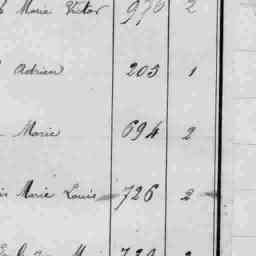 Marie Victor 970 2
Adrien 203 1
Marie 694 2
Marie Louis 726 2